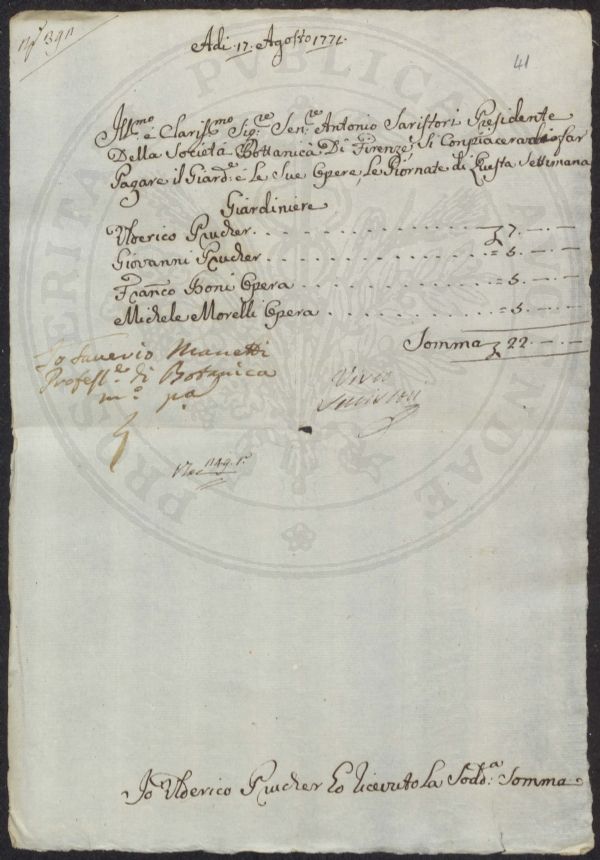 N° 1391
41
Adi 17. Agosto 1771.
Ill.mo e Clariss.mo Sig.re Sen.re Antonio Saristori Presidente
Della Societá Bottanica Di Firenze Si Compiacerà di far
Pagare il Giard.e é le Sue Opere, le Giornate di Questa Settimana
Giardiniere
Ulderico Prucher . . . . . . . . . . . . . 7. — · —
Giovanni Prucher . . . . . . . . . . . . . = 5. — · —
Fran.co Boni Opera . . . . . . . . . . . = 5. — · —
Michele Morelli Opera . . . . . . . . . . = 5. — · —
Somma 22. — · —
Io Saverio Manetti
Profess.e di Botanica
m.o pa
1149.
Io Ulderico Prucher Eo ricevuto La Sodd.a Somma
PUBLICA
PROSPERITATI AUGENDAE